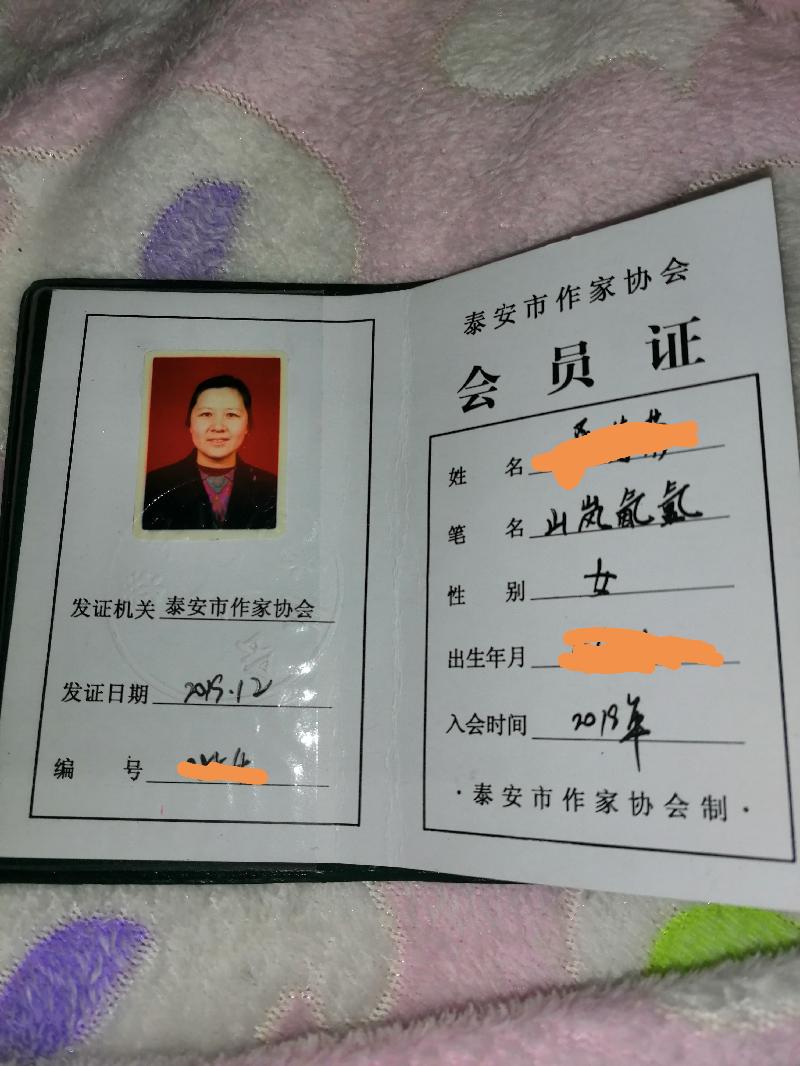 发证机关 泰安市作家协会
发证日期 2019.12
编 号
泰安市作家协会
会员证
姓 名
笔 名 山岚氤氲
性 别 女
出生年月
入会时间 2019年
·泰安市作家协会制·